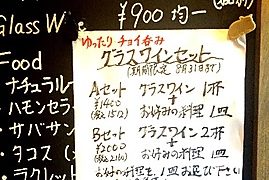 Glass W
¥900 均一
Food
・ナチュラル
・ハモンセラ
・サバサン
・タコス
・ラクレット
ゆったり チョイ呑み
グラスワインセット
(期間限定 8月31日まで)
Aセット グラスワイン 1杯
¥1400 +
(税込1512) お好みの料理 1皿
Bセット グラスワイン 2杯
¥2000 +
(税込2160) お好みの料理 1皿
お好みの料理を1皿お選びください